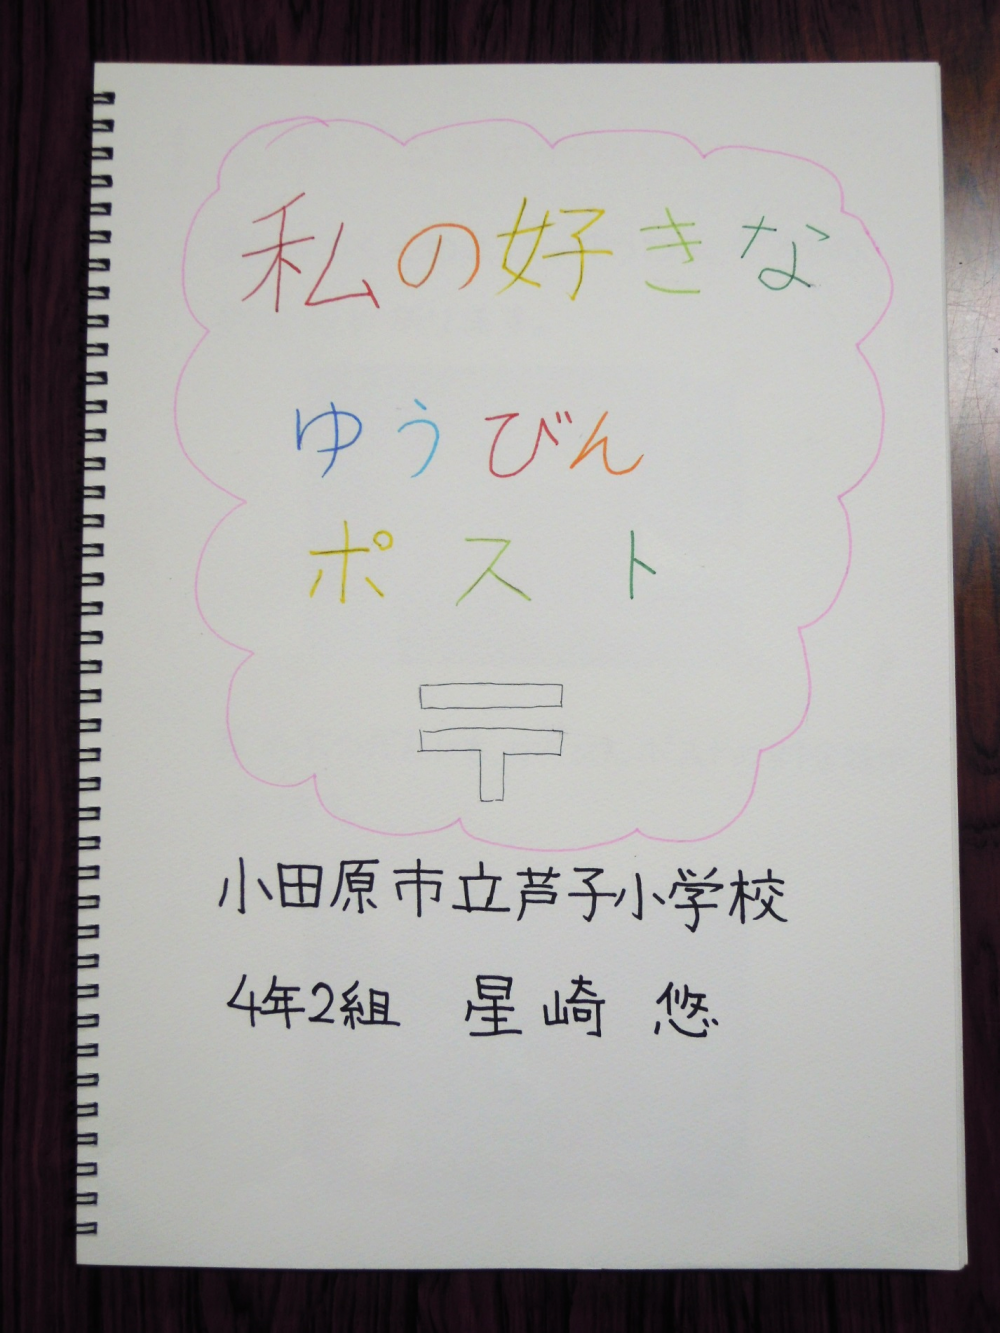 私の好きな
ゆうびん
ポスト
〒
小田原市立芦子小学校
4年2組 星崎 悠